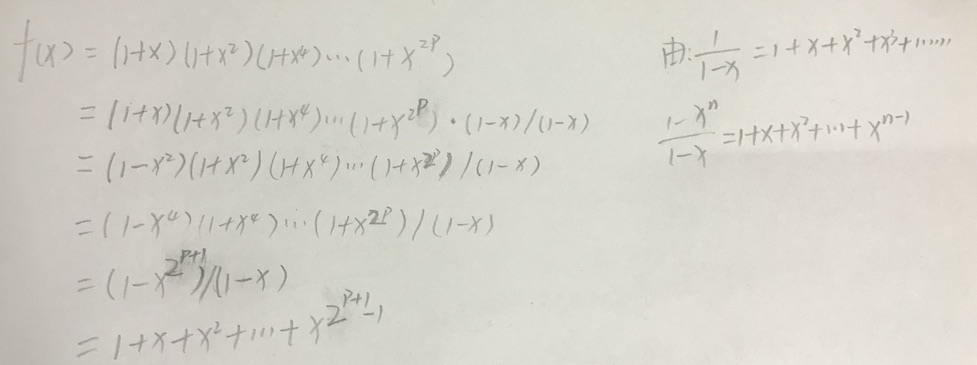 f(x) = (1+x)(1+x²)(1+x⁴)⋯(1+x^{2^p})
= (1+x)(1+x²)(1+x⁴)⋯(1+x^{2^p})·(1-x)/(1-x)
= (1-x²)(1+x²)(1+x⁴)⋯(1+x^{2^p})/(1-x)
= (1-x⁴)(1+x⁴)⋯(1+x^{2^p})/(1-x)
= (1-x^{2^{p+1}})/(1-x)
= 1+x+x²+⋯+x^{2^{p+1}-1}
由: \frac{1}{1-x} = 1+x+x²+x³+⋯⋯
\frac{1-x^n}{1-x} = 1+x+x²+⋯+x^{n-1}